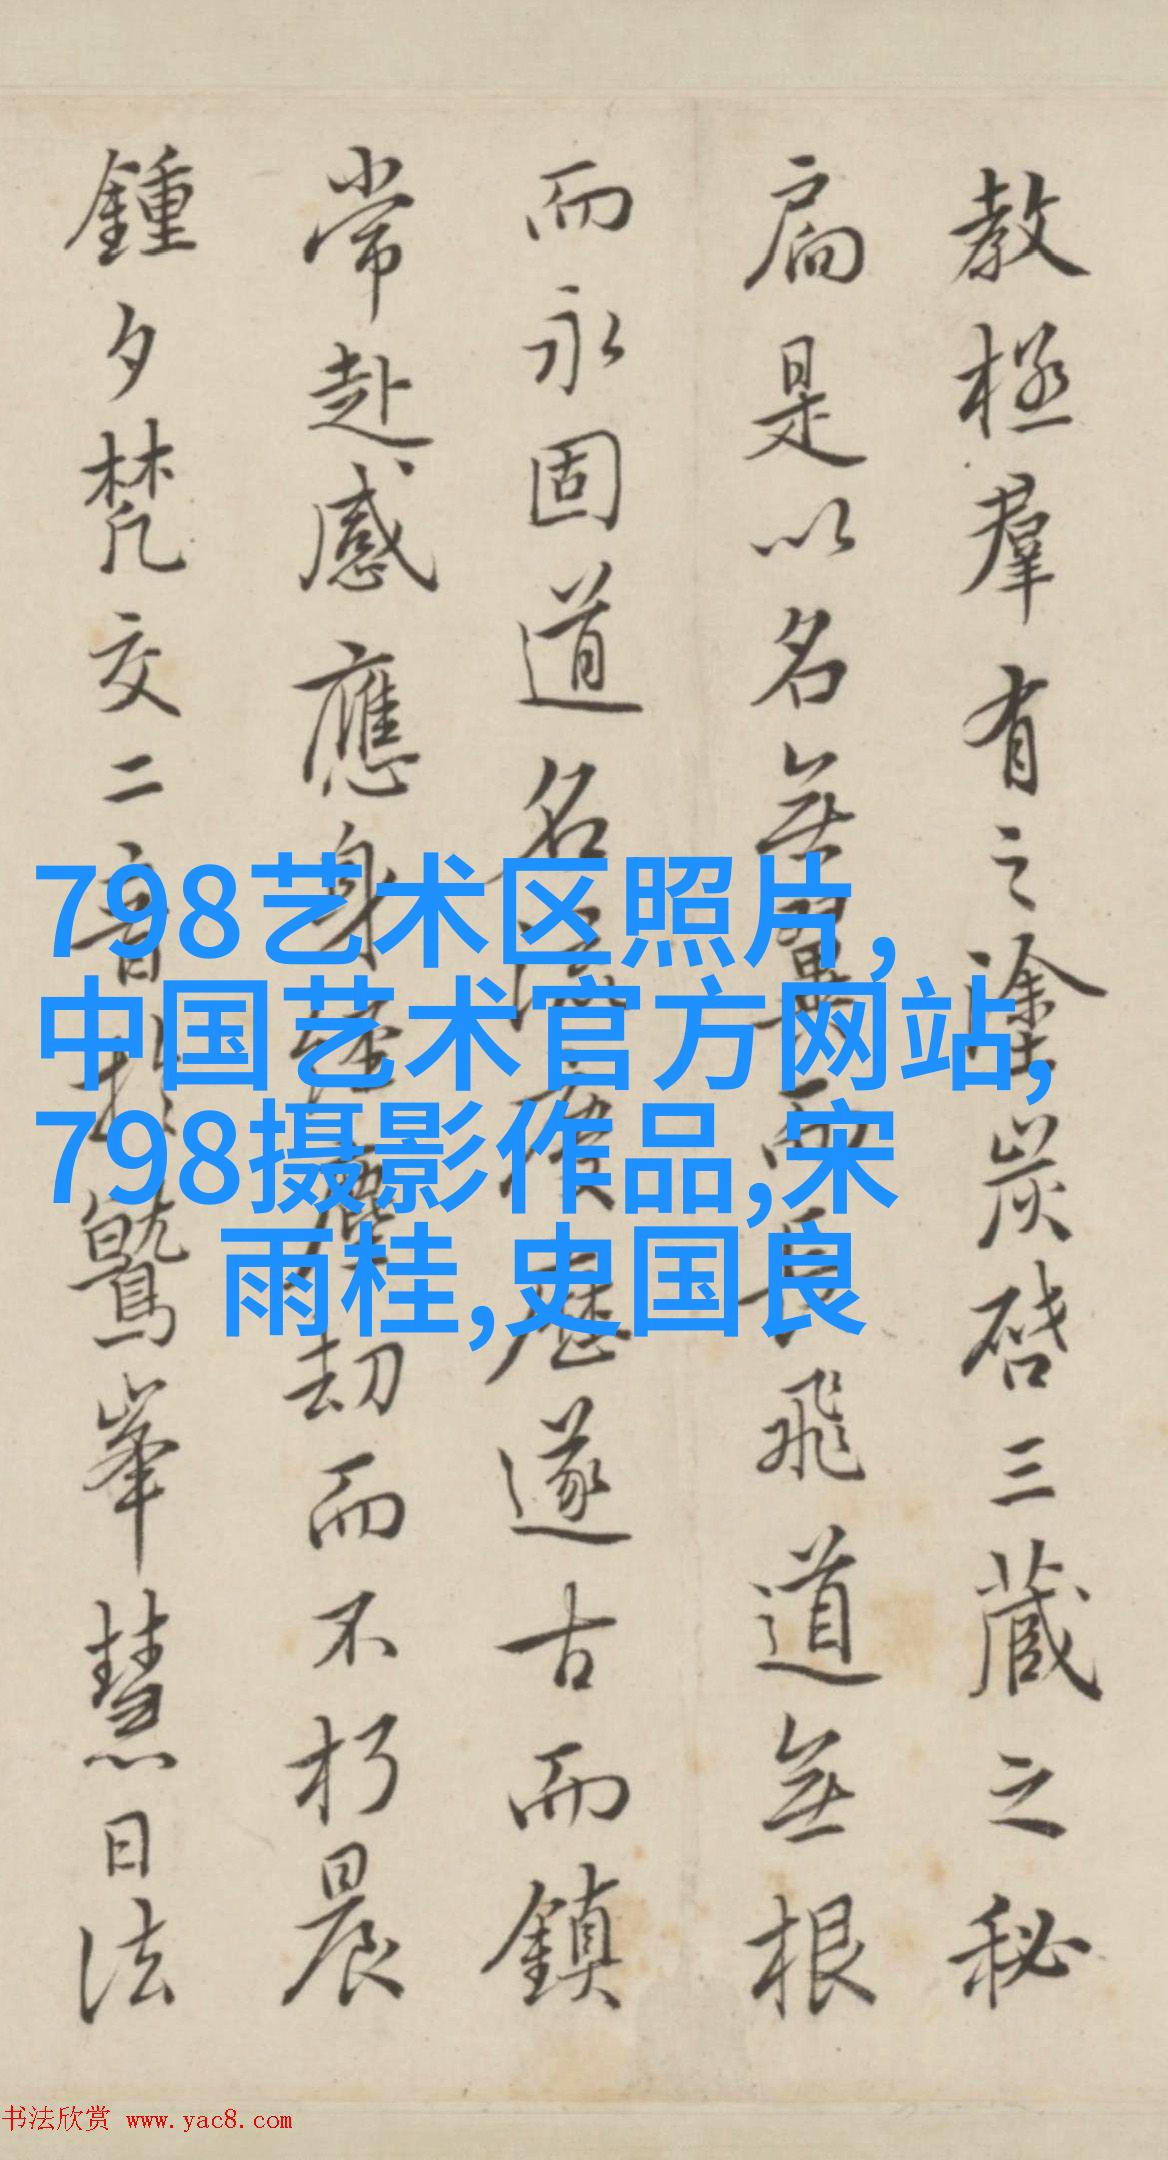 教極羣有之塗炭啓三藏之秘
扃是以名無翼而長飛道無根
而永固道名流慶歷遂古而鎮
常赴感應身經塵劫而不朽晨
鍾夕梵交二音於鷲峯慧日法
798艺术区照片,
中国艺术官方网站,
798摄影作品,宋
雨桂,史国良
书法欣赏 www.yac8.com